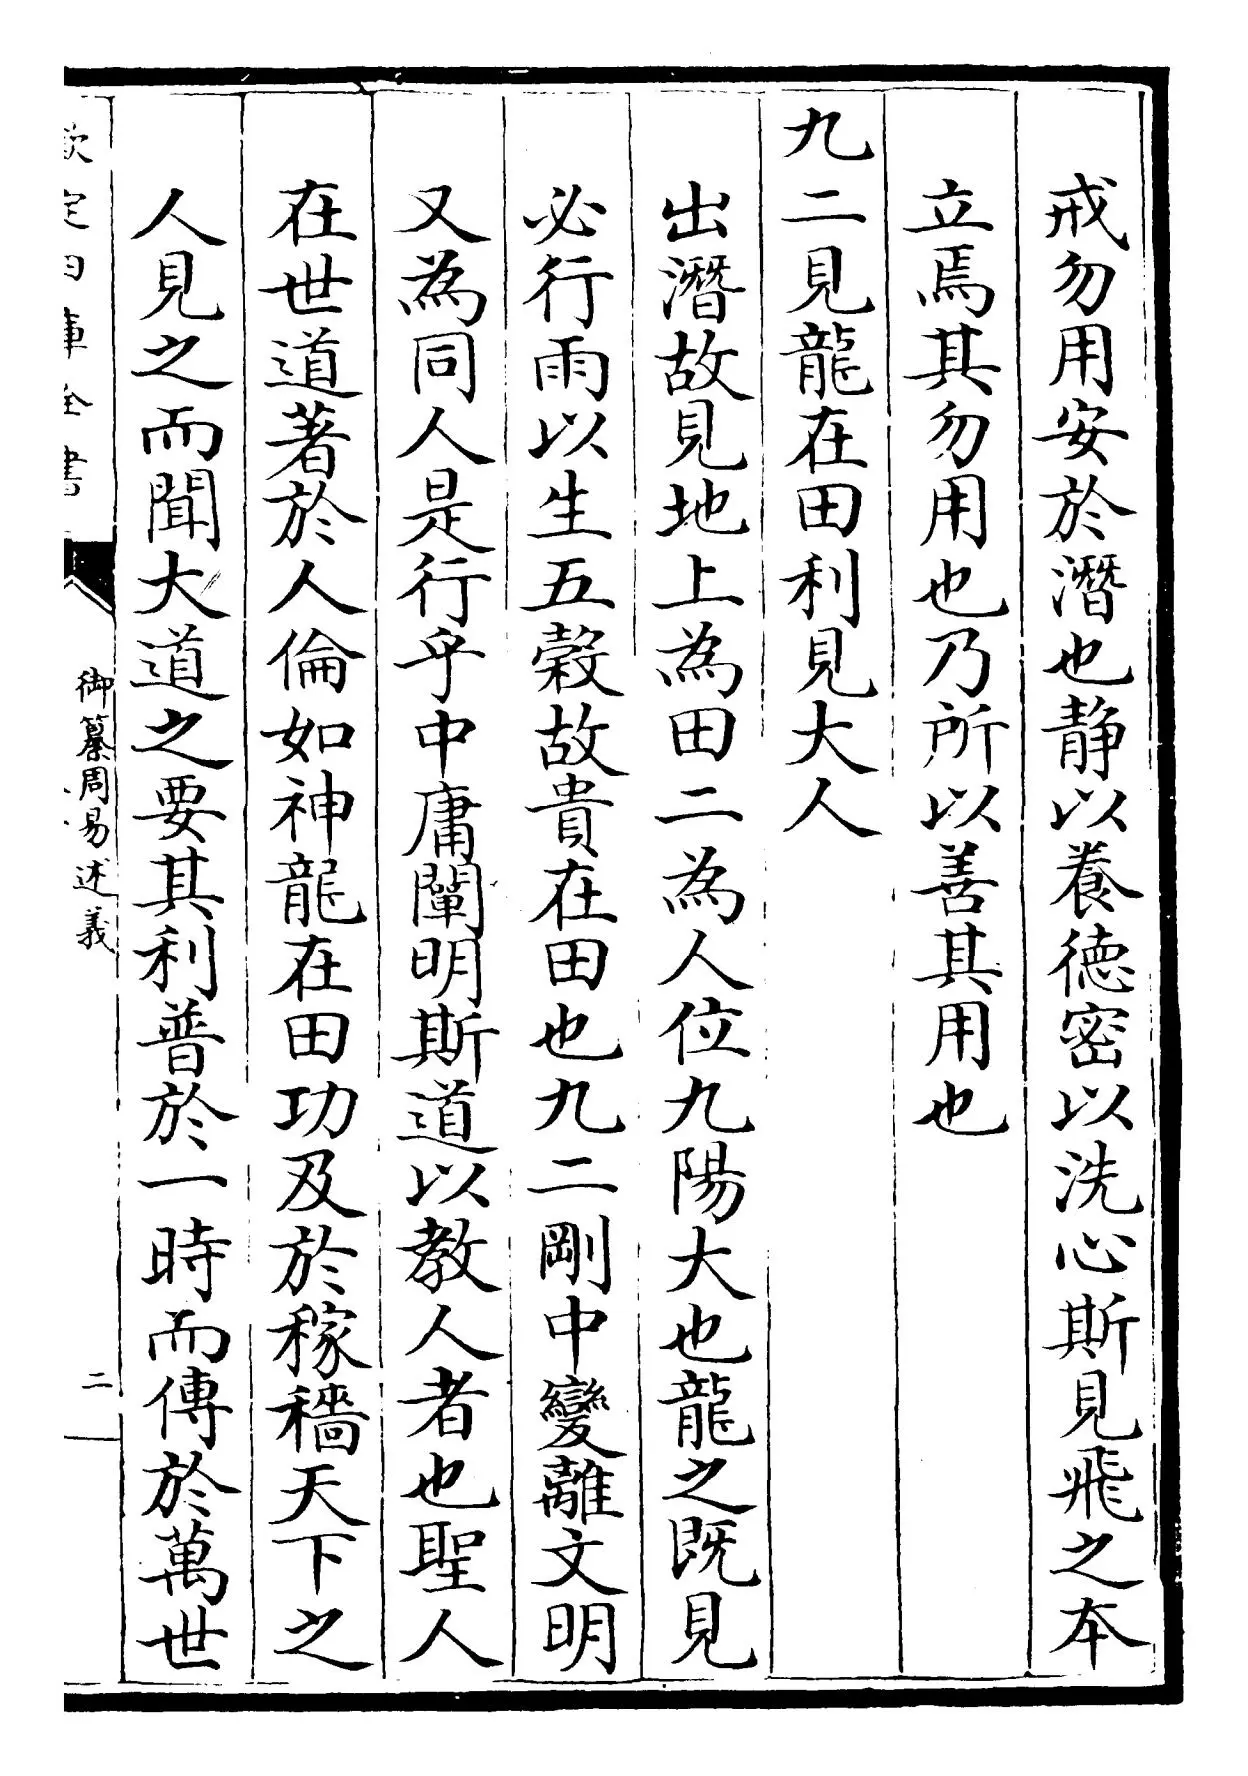 戒勿用安於潛也靜以養德密以洗心斯見飛之本
立焉其勿用也乃所以善其用也
九二見龍在田利見大人
出潛故見地上為田二為人位九陽大也龍之既見
必行雨以生五榖故貴在田也九二剛中變離文明
又為同人是行乎中庸闡明斯道以教人者也聖人
在世道著於人倫如神龍在田功及於稼穡天下之
人見之而聞大道之要其利普於一時而傳於萬世
欽定四庫全書
御纂周易述義
二